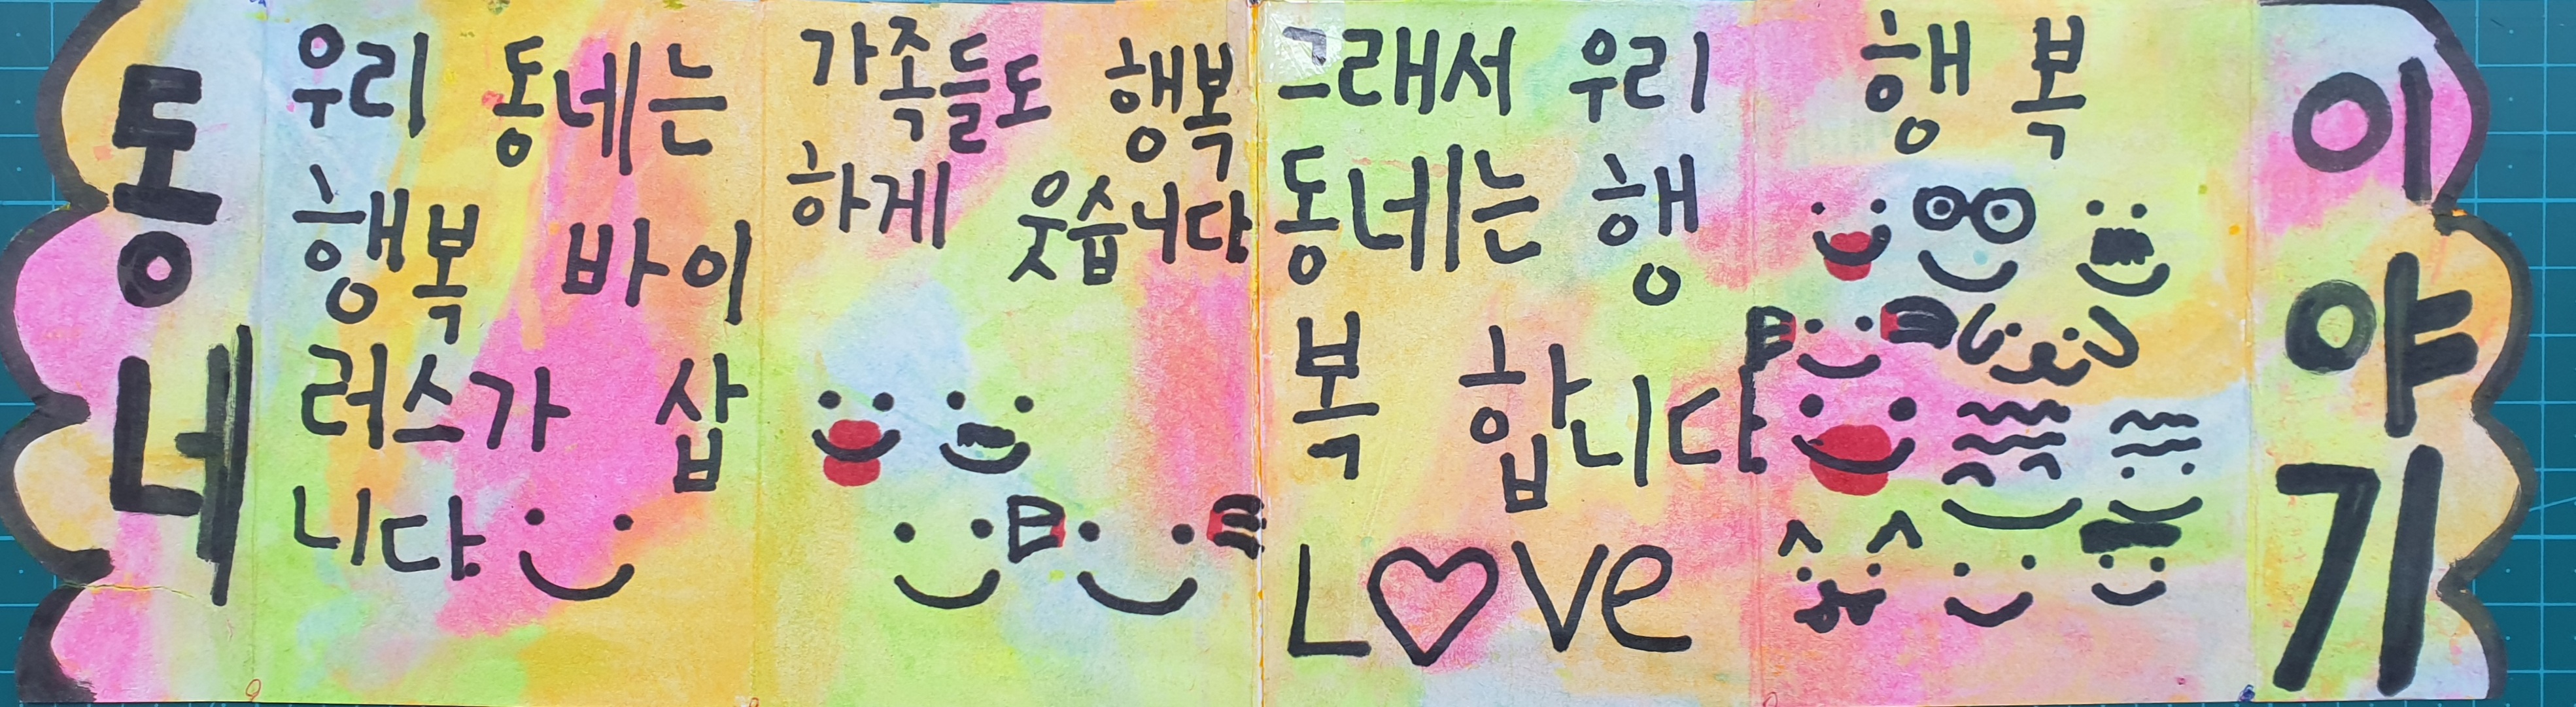 동네
우리 동네는
행복 바이
러스가 삽
니다
가족들도 행복
하게 웃습니다
그래서 우리
동네는 행
복 합니다
L♡Ve
행복
이야기